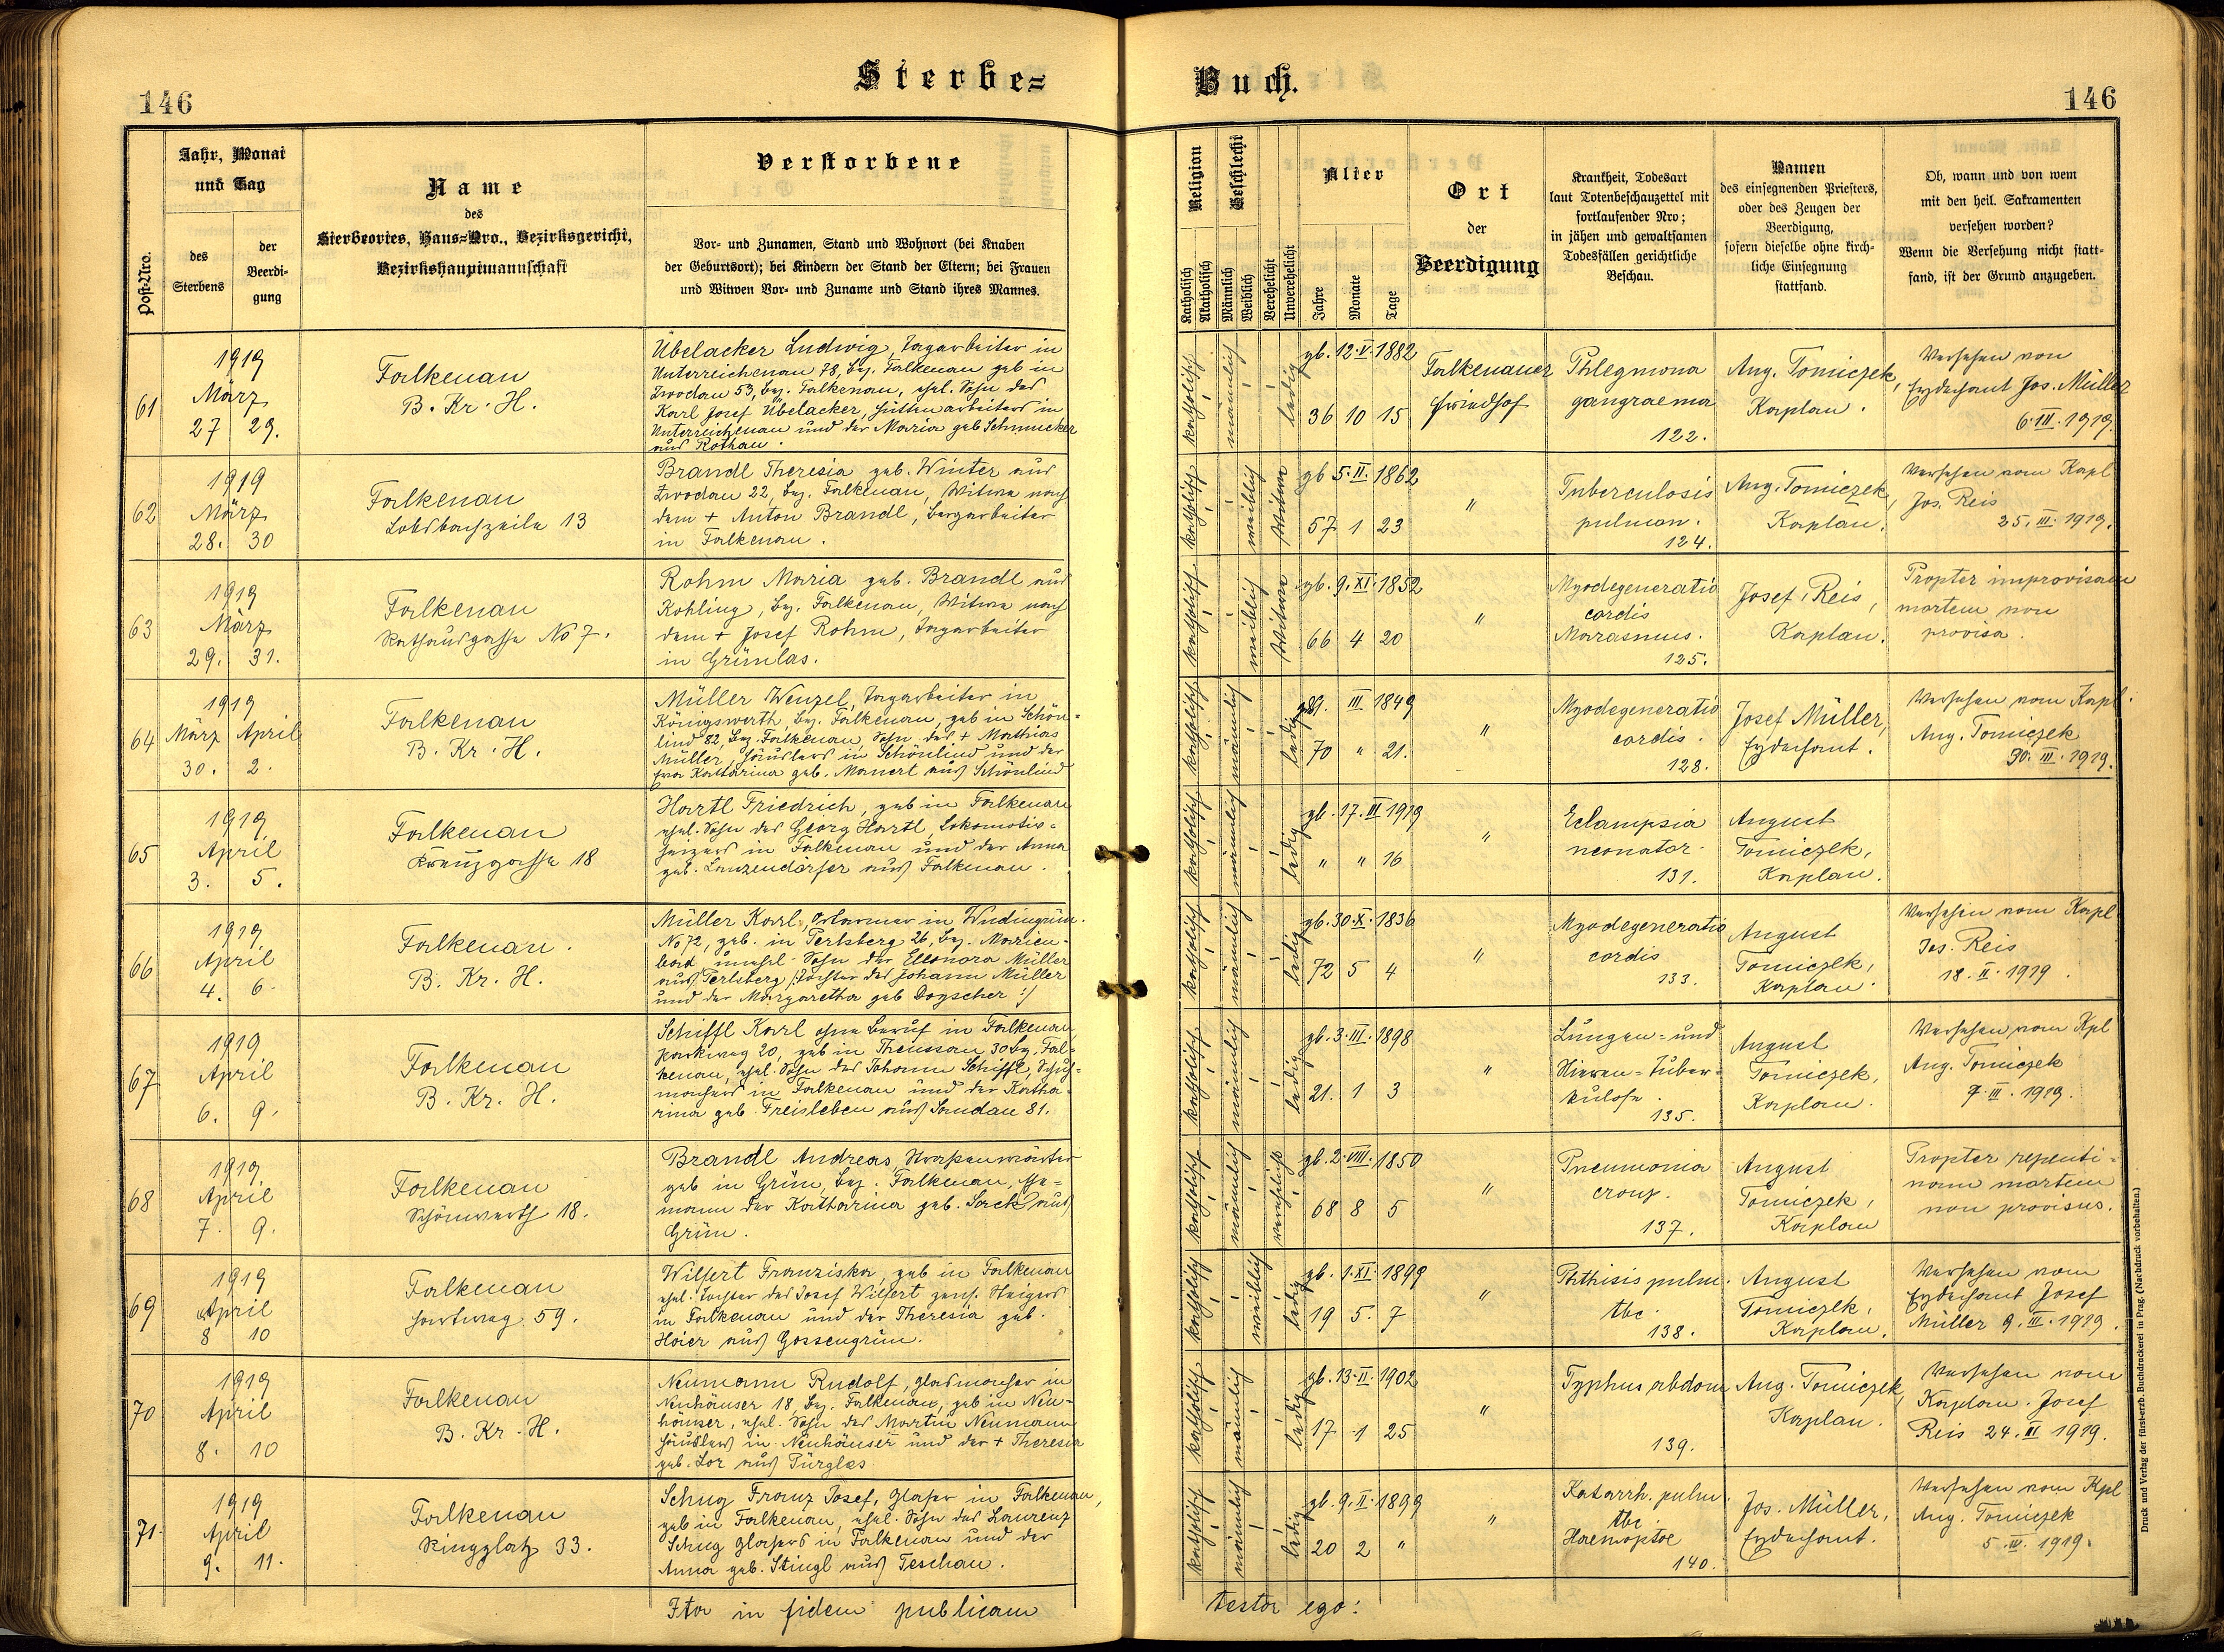 146
Sterbe=
Buch.
146
Post-Nro.
Jahr, Monat
und Tag
des
Sterbens
der
Beerdi-
gung
Name
des
Sterbeortes, Haus=Nro., Bezirksgericht,
Bezirkshauptmannschaft
Verstorbene
Vor- und Zunamen, Stand und Wohnort (bei Knaben
der Geburtsort); bei Kindern der Stand der Eltern; bei Frauen
und Witwen Vor- und Zuname und Stand ihres Mannes.
Religion
Katholisch
Akatholisch
Geschlecht
Männlich
Weiblich
Verehelicht
Unverehelicht
Alter
Jahre
Monate
Tage
Ort
der
Beerdigung
Krankheit, Todesart
laut Totenbeschauzettel mit
fortlaufender Nro;
in jähen und gewaltsamen
Todesfällen gerichtliche
Beschau.
Namen
des einsegnenden Priesters,
oder des Zeugen der
Beerdigung,
sofern dieselbe ohne kirch-
liche Einsegnung
stattfand.
Ob, wann und von wem
mit den heil. Sakramenten
versehen worden?
Wenn die Versehung nicht statt-
fand, ist der Grund anzugeben.
61
1919
März
27 29.
Falkenau
B. Kr. H.
Übelacker Ludwig, Tagarbeiter in
Unterreichenau 78, Bez. Falkenau geb in
Zwodau 53, Bez. Falkenau, ehel. Sohn des
Karl Josef Übelacker, Hüttenarbeiters in
Unterreichenau und der Maria geb Schmucker
aus Rothau.
katholisch
männlich
ledig
gb. 12. V. 1882
36 10 15
Falkenauer
Friedhof
Phlegmona
gangraena
122.
Aug. Tomiczek,
Kaplan.
Versehen von
Erzdechant Jos. Müller
6. III. 1919.
62
1919
März
28. 30
Falkenau
Lobsbachzeile 13
Brandl Theresia geb. Winter aus
Zwodau 22, Bez. Falkenau, Witwe nach
dem + Anton Brandl, Bergarbeiter
in Falkenau.
katholisch
weiblich
Witwe
gb 5. II. 1862
57 1 23
"
Tuberculosis
pulmon.
124.
Aug. Tomiczek,
Kaplan.
Versehen vom Kapl
Jos. Reis
25. III. 1919.
63
1919
März
29. 31.
Falkenau
Rathausgasse No 7.
Rohm Maria geb. Brandl aus
Kohling, Bez. Falkenau, Witwe nach
dem + Josef Rohm, Tagarbeiter
in Grünlas.
katholisch
weiblich
Witwe
gb. 9. XI. 1852
66 4 20
"
Myodegeneratio
cordis
Marasmus.
125.
Josef Reis,
Kaplan.
Propter improvisam
mortem non
provisa.
64
1919
März April
30. 2.
Falkenau
B. Kr. H.
Müller Wenzel, Tagarbeiter in
Königswerth, Bez. Falkenau, geb in Schön=
lind 82, Bez. Falkenau, Sohn des + Mathias
Müller, Häuslers in Schönlind und der
Eva Katharina geb. Manert aus Schönlind
katholisch
männlich
ledig
III 1849
70 " 21.
"
Myodegeneratio
cordis.
128.
Josef Müller,
Erzdechant.
Versehen vom Kapl.
Aug. Tomiczek
30. III. 1919.
65
1919
April
3. 5.
Falkenau
Kreuzgasse 18
Hartl Friedrich, geb in Falkenau
ehel. Sohn des Georg Hartl, Lokomotiv=
heizers in Falkenau und der Anna
geb. Lanzendörfer aus Falkenau.
katholisch
männlich
ledig
gb. 17. III 1919
" " 16
"
Eclampsia
neonator.
131.
August
Tomiczek,
Kaplan.
66
1919
April
4. 6.
Falkenau.
B. Kr. H.
Müller Karl, Ortsarmer in Wudingrün.
No 72, geb. in Perlsberg 26, Bez. Marien-
bad unehel. Sohn der Elleonora Müller
aus Perlsberg /: Tochter des Johann Müller
und der Margaretha geb Dogscher :/
katholisch
männlich
ledig
gb. 30. X. 1836
72 5 4
"
Myodegeneratio
cordis
133.
August
Tomiczek,
Kaplan.
Versehen vom Kapl
Jos. Reis
18. II. 1919.
67
1919
April
6. 9.
Falkenau
B. Kr. H.
Schiffl Karl ohne Beruf in Falkenau
Parkweg 20, geb in Theussau 30 Bez. Fal=
kenau, ehel. Sohn des Johann Schiffl, Schuh=
machers in Falkenau und der Katha=
rina geb. Freisleben aus Sandau 81.
katholisch
männlich
ledig
gb. 3. III. 1898
21. 1 3
"
Lungen= und
Nieren=Tuber=
kulose.
135.
August
Tomiczek,
Kaplan.
Versehen vom Kpl
Aug. Tomiczek
7. III. 1919.
68
1919
April
7. 9.
Falkenau
Schönwerth 18.
Brandl Andreas, Strassenwärter
geb in Grün, Bez. Falkenau, Ehe=
mann der Katharina geb. Sack aus
Grün.
katholisch
männlich
verehelicht
gb. 2. VIII. 1850
68 8 5
"
Pneumonia
croup.
137.
August
Tomiczek,
Kaplan
Propter repenti=
nam mortem
non provisus.
69
1919
April
8 10
Falkenau
Hartweg 59.
Wilfert Franziska, geb in Falkenau
ehel. Tochter des Josef Wilfert
in Falkenau und der Theresia geb.
Hoier aus Gossengrün.
katholisch
weiblich
ledig
gb. 1. XI. 1899
19 5. 7
"
Phthisis pulm.
tbc.
138.
August
Tomiczek,
Kaplan.
Versehen vom
Erzdechant Josef
Müller 9. III. 1919.
70
1919
April
8. 10
Falkenau
B. Kr. H.
Neumann Rudolf, Glasmacher in
Neuhäuser 18, Bez. Falkenau, geb in Neu-
häuser, ehel. Sohn des Martin Neumann
Häuslers in Neuhäuser und der + Theresia
geb. Lor aus Türglas
katholisch
männlich
ledig
gb. 13. II. 1902
17 1 25
"
Typhus abdom
139.
Aug. Tomiczek,
Kaplan.
Versehen vom
Kaplan. Josef
Reis 24. III 1919.
71.
1919
April
9. 11.
Falkenau
Ringplatz 33.
Schug Franz Josef, Glaser in Falkenau,
geb in Falkenau, ehel. Sohn des Laurenz
Schug Glasers in Falkenau und der
Anna geb. Stingl aus Teschau.
katholisch
männlich
ledig
gb. 9. II. 1899
20 2 "
"
Katarrh. pulm.
tbc
Haemoptoe
140.
Jos. Müller,
Erzdechant.
Versehen vom Kpl
Aug. Tomiczek
5. IV. 1919.
Ita in fidem publicam
testor ego:
Druck und Verlag der fürst-erzb. Buchdruckerei in Prag. (Nachdruck vorbehalten.)